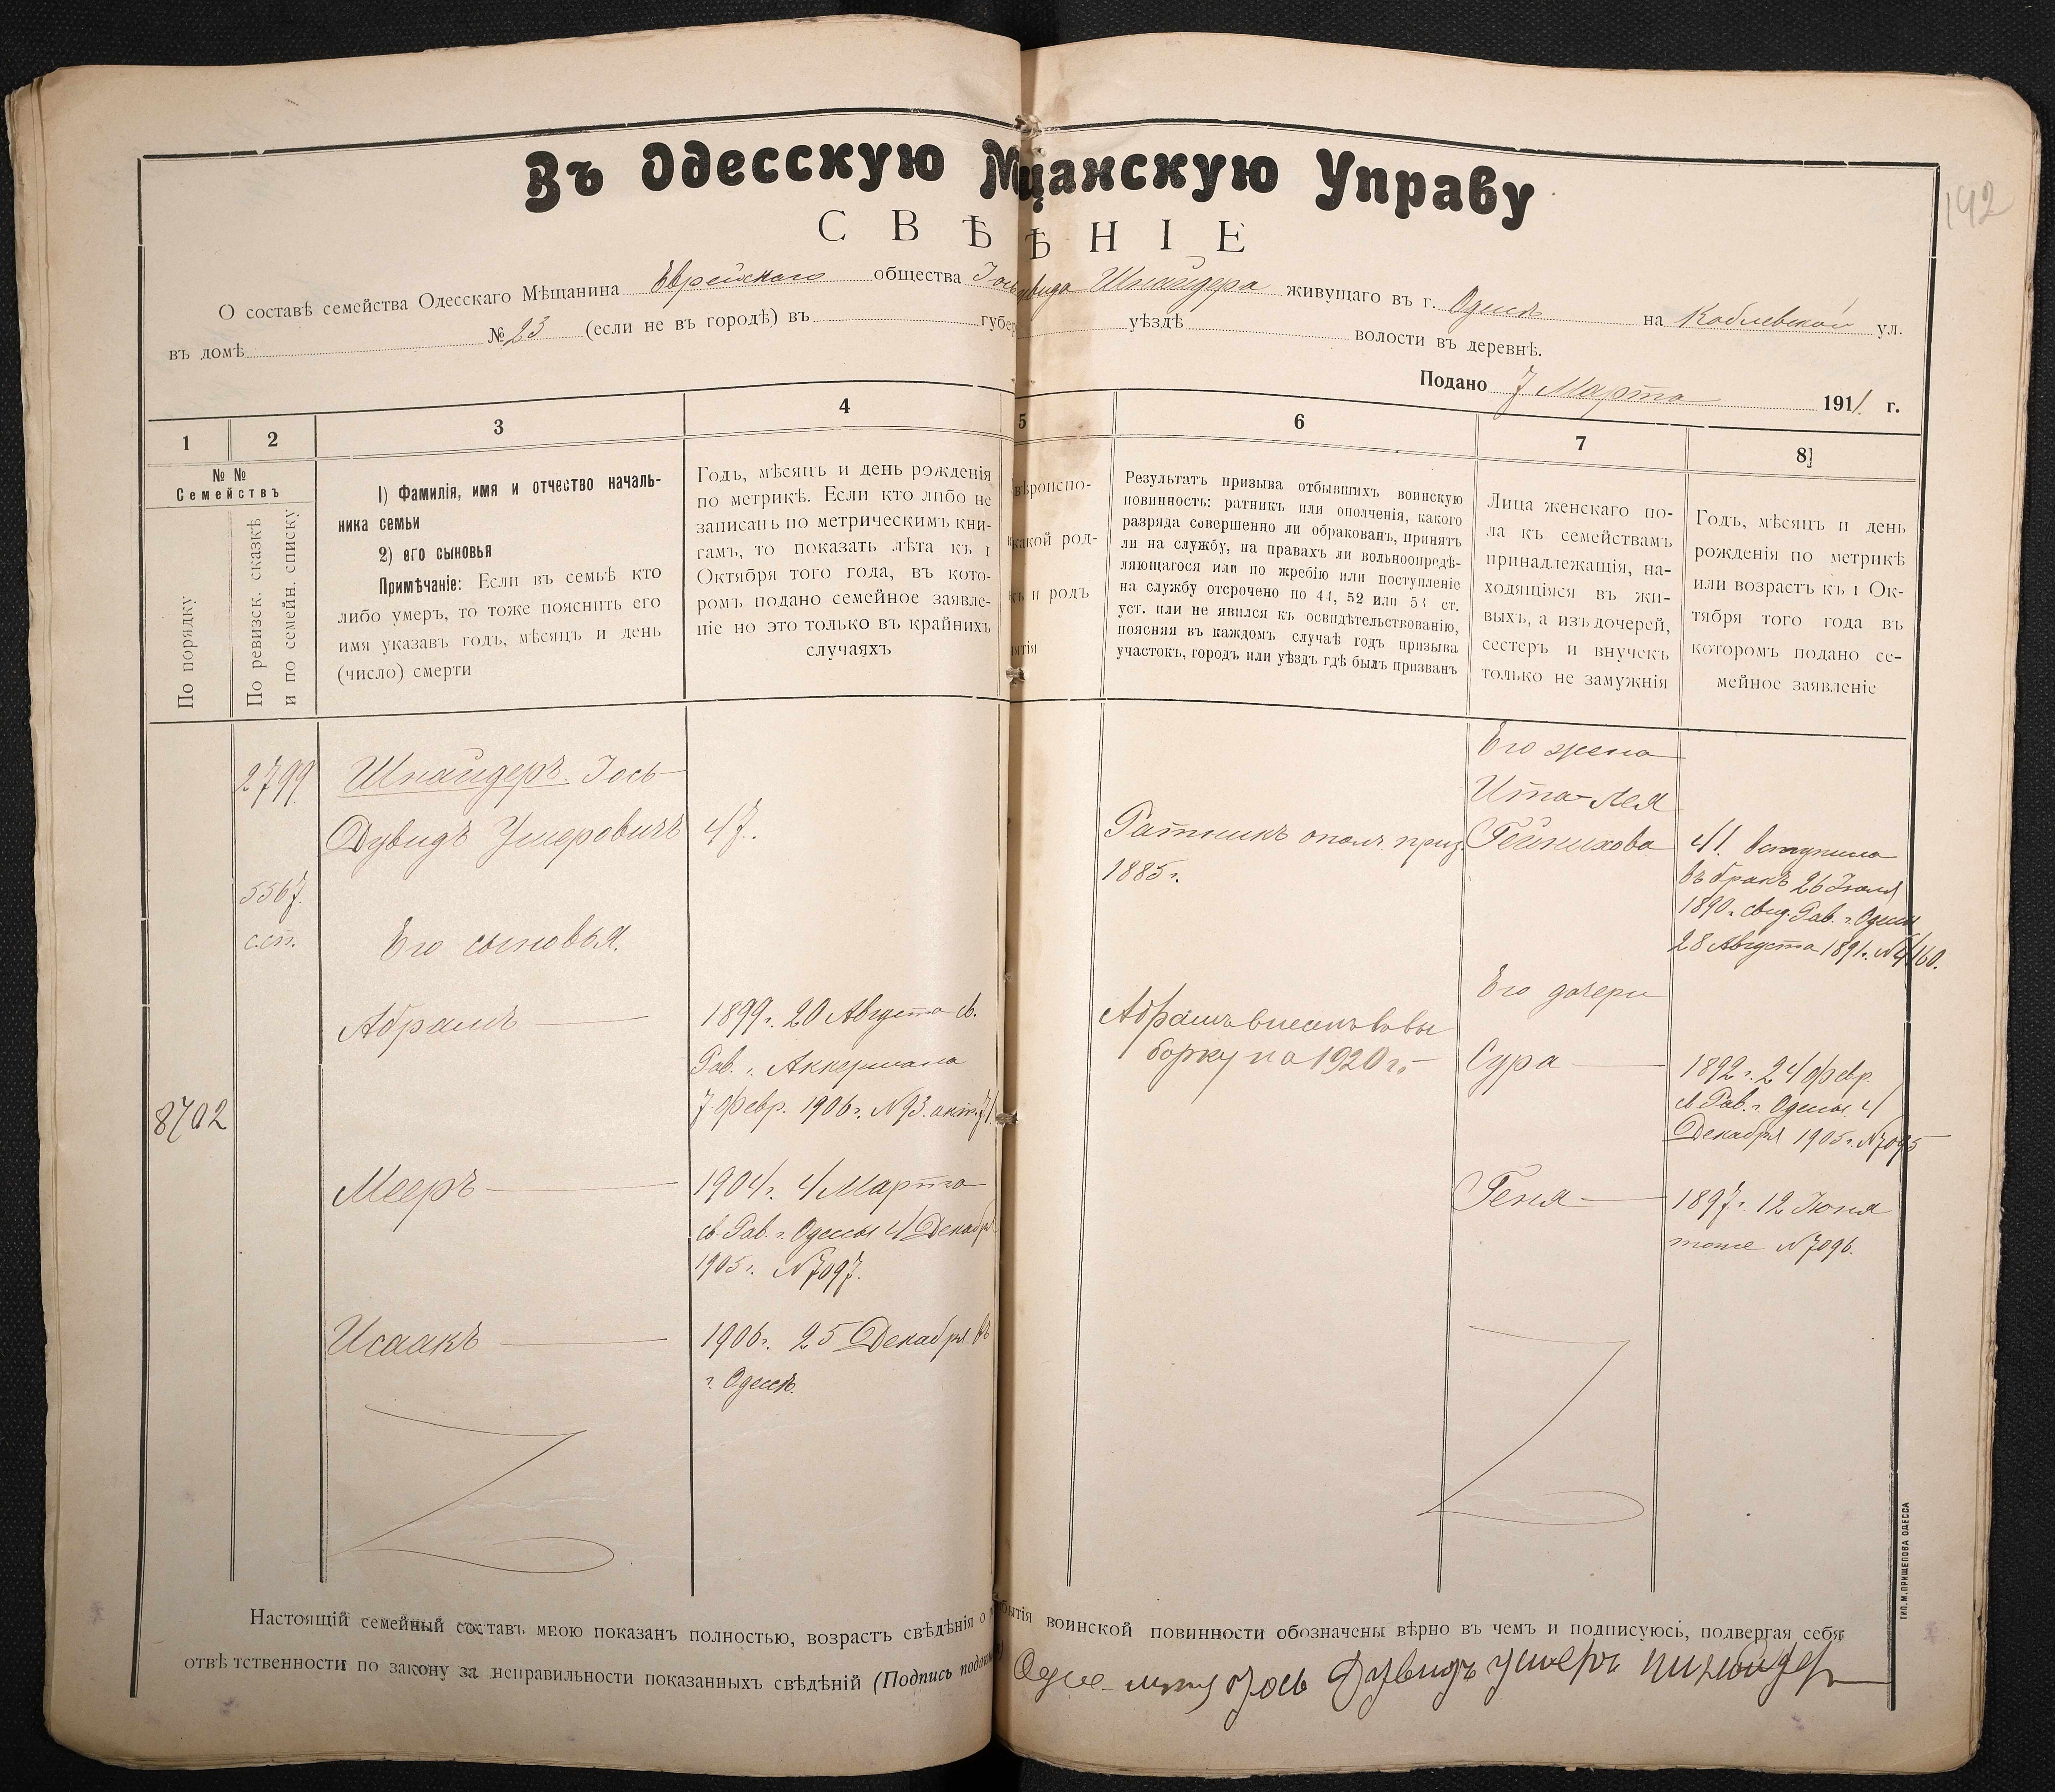 Въ Одесскую М щанскую Управу
СВѢ ѢНІЕ
142
О составѣ семейства Одесскаго Мѣщанина Еврейскаго общества Іось Дувида Шнайдера живущаго въ г. Одессѣ на Коблевской ул.
въ домѣ № 23 (если не въ городѣ) въ губер уѣздѣ волости въ деревнѣ.
Подано 7 Марта 1911 г.
1 2 3 4 5 6 7 8
№ №
Семействъ
По порядку
По ревизск. сказкѣ
и по семейн. списку
1) Фамилія, имя и отчество началь-
ника семьи
2) его сыновья
Примѣчаніе: Если въ семьѣ кто
либо умеръ, то тоже пояснить его
имя указавъ годъ, мѣсяцъ и день
(число) смерти
Годъ, мѣсяцъ и день рожденія
по метрикѣ. Если кто либо не
записанъ по метрическимъ кни-
гамъ, то показать лѣта къ 1
Октября того года, въ кото-
ромъ подано семейное заявле-
ніе но это только въ крайнихъ
случаяхъ
вѣроиспо-
какой род-
и родъ
ятія
Результатъ призыва отбывшихъ воинскую
повинность: ратникъ или ополченія, какого
разряда совершенно ли обракованъ, принятъ
ли на службу, на правахъ ли вольноопредѣ-
ляющагося или по жребію или поступленіе
на службу отсрочено по 44, 52 или 53 ст.
уст. или не явился къ освидѣтельствованію,
поясняя въ каждомъ случаѣ годъ призыва
участокъ, городъ или уѣздъ гдѣ былъ призванъ
Лица женскаго по-
ла къ семействамъ
принадлежащія, на-
ходящіяся въ жи-
выхъ, а изъ дочерей,
сестеръ и внучекъ
только не замужнія
Годъ, мѣсяцъ и день
рожденія по метрикѣ
или возрастъ къ 1 Ок-
тября того года въ
которомъ подано се-
мейное заявленіе
8702
2799
5567.
с.сп.
Шнайдеръ Іось-
Дувидъ Умеровичъ
47.
Его сыновья.
Абрамъ
1899 г. 20 Августа св.
Рав. г. Аккермана
7 февр. 1906 г. N 93. акт. 71.
Мееръ
1904 г. 4 Марта
св. Рав. г. Одессы 4 Декабря
1905 г. N 7097.
Исаакъ
1906 г. 25 Декабря въ
г. Одессѣ.
Ратникъ ополч. приз.
1885 г.
Абрамъ внесенъ въ вы
борку на 1920 г.
Его жена
Ита-Лея
Гейнихова
41. вступила
въ бракъ 26 Іюля
1890 г. свид. Рав. г. Одессы
28 Августа 1891 г. N 4160.
Его дочери
Сура
1892 г. 24 февр.
св. Рав. г. Одессы 4
Декабря 1905 г. N 7095
Геня
1897 г. 12 Іюня
тоже N 7096.
Настоящій семейный составъ мною показанъ полностью, возрастъ свѣдѣнія о бытія воинской повинности обозначены вѣрно въ чемъ и подписуюсь, подвергая себя
отвѣтственности по закону за неправильности показанныхъ свѣдѣній (Подпись подаю
Іось Дувидъ Умеръ Шнайдеръ
ТИП. М. ПРИЩЕПОВА ОДЕССА